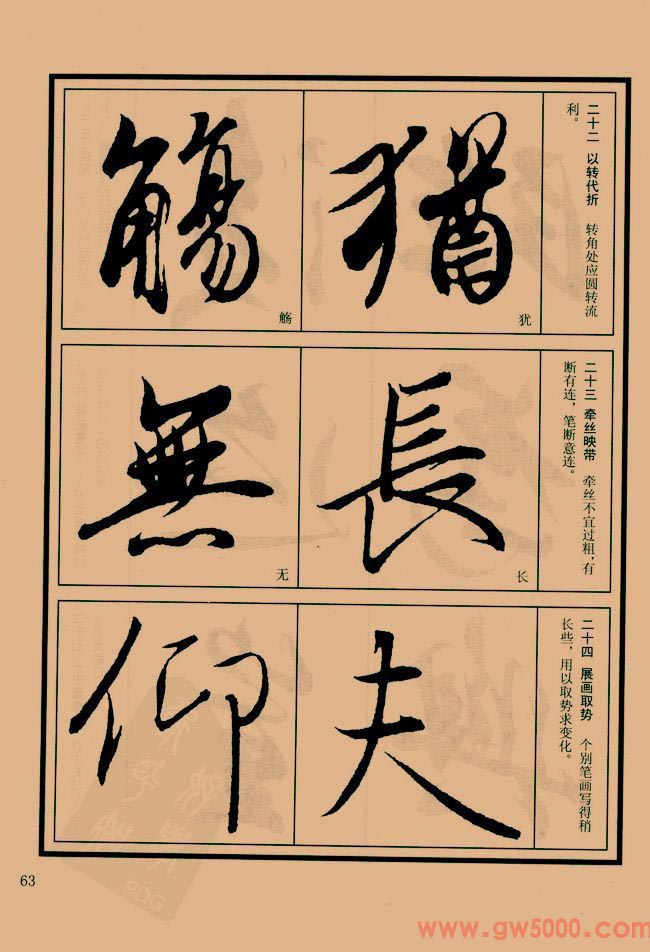 二十二 以转代折 转角处应圆转流
利。
猶
犹
觞
觴
二十三 牵丝映带 牵丝不宜过粗，有
断有连，笔断意连。
長
长
無
无
二十四 展画取势 个别笔画写得稍
长些，用以取势求变化。
夫
仰
63
PDG
www.gw5000.com